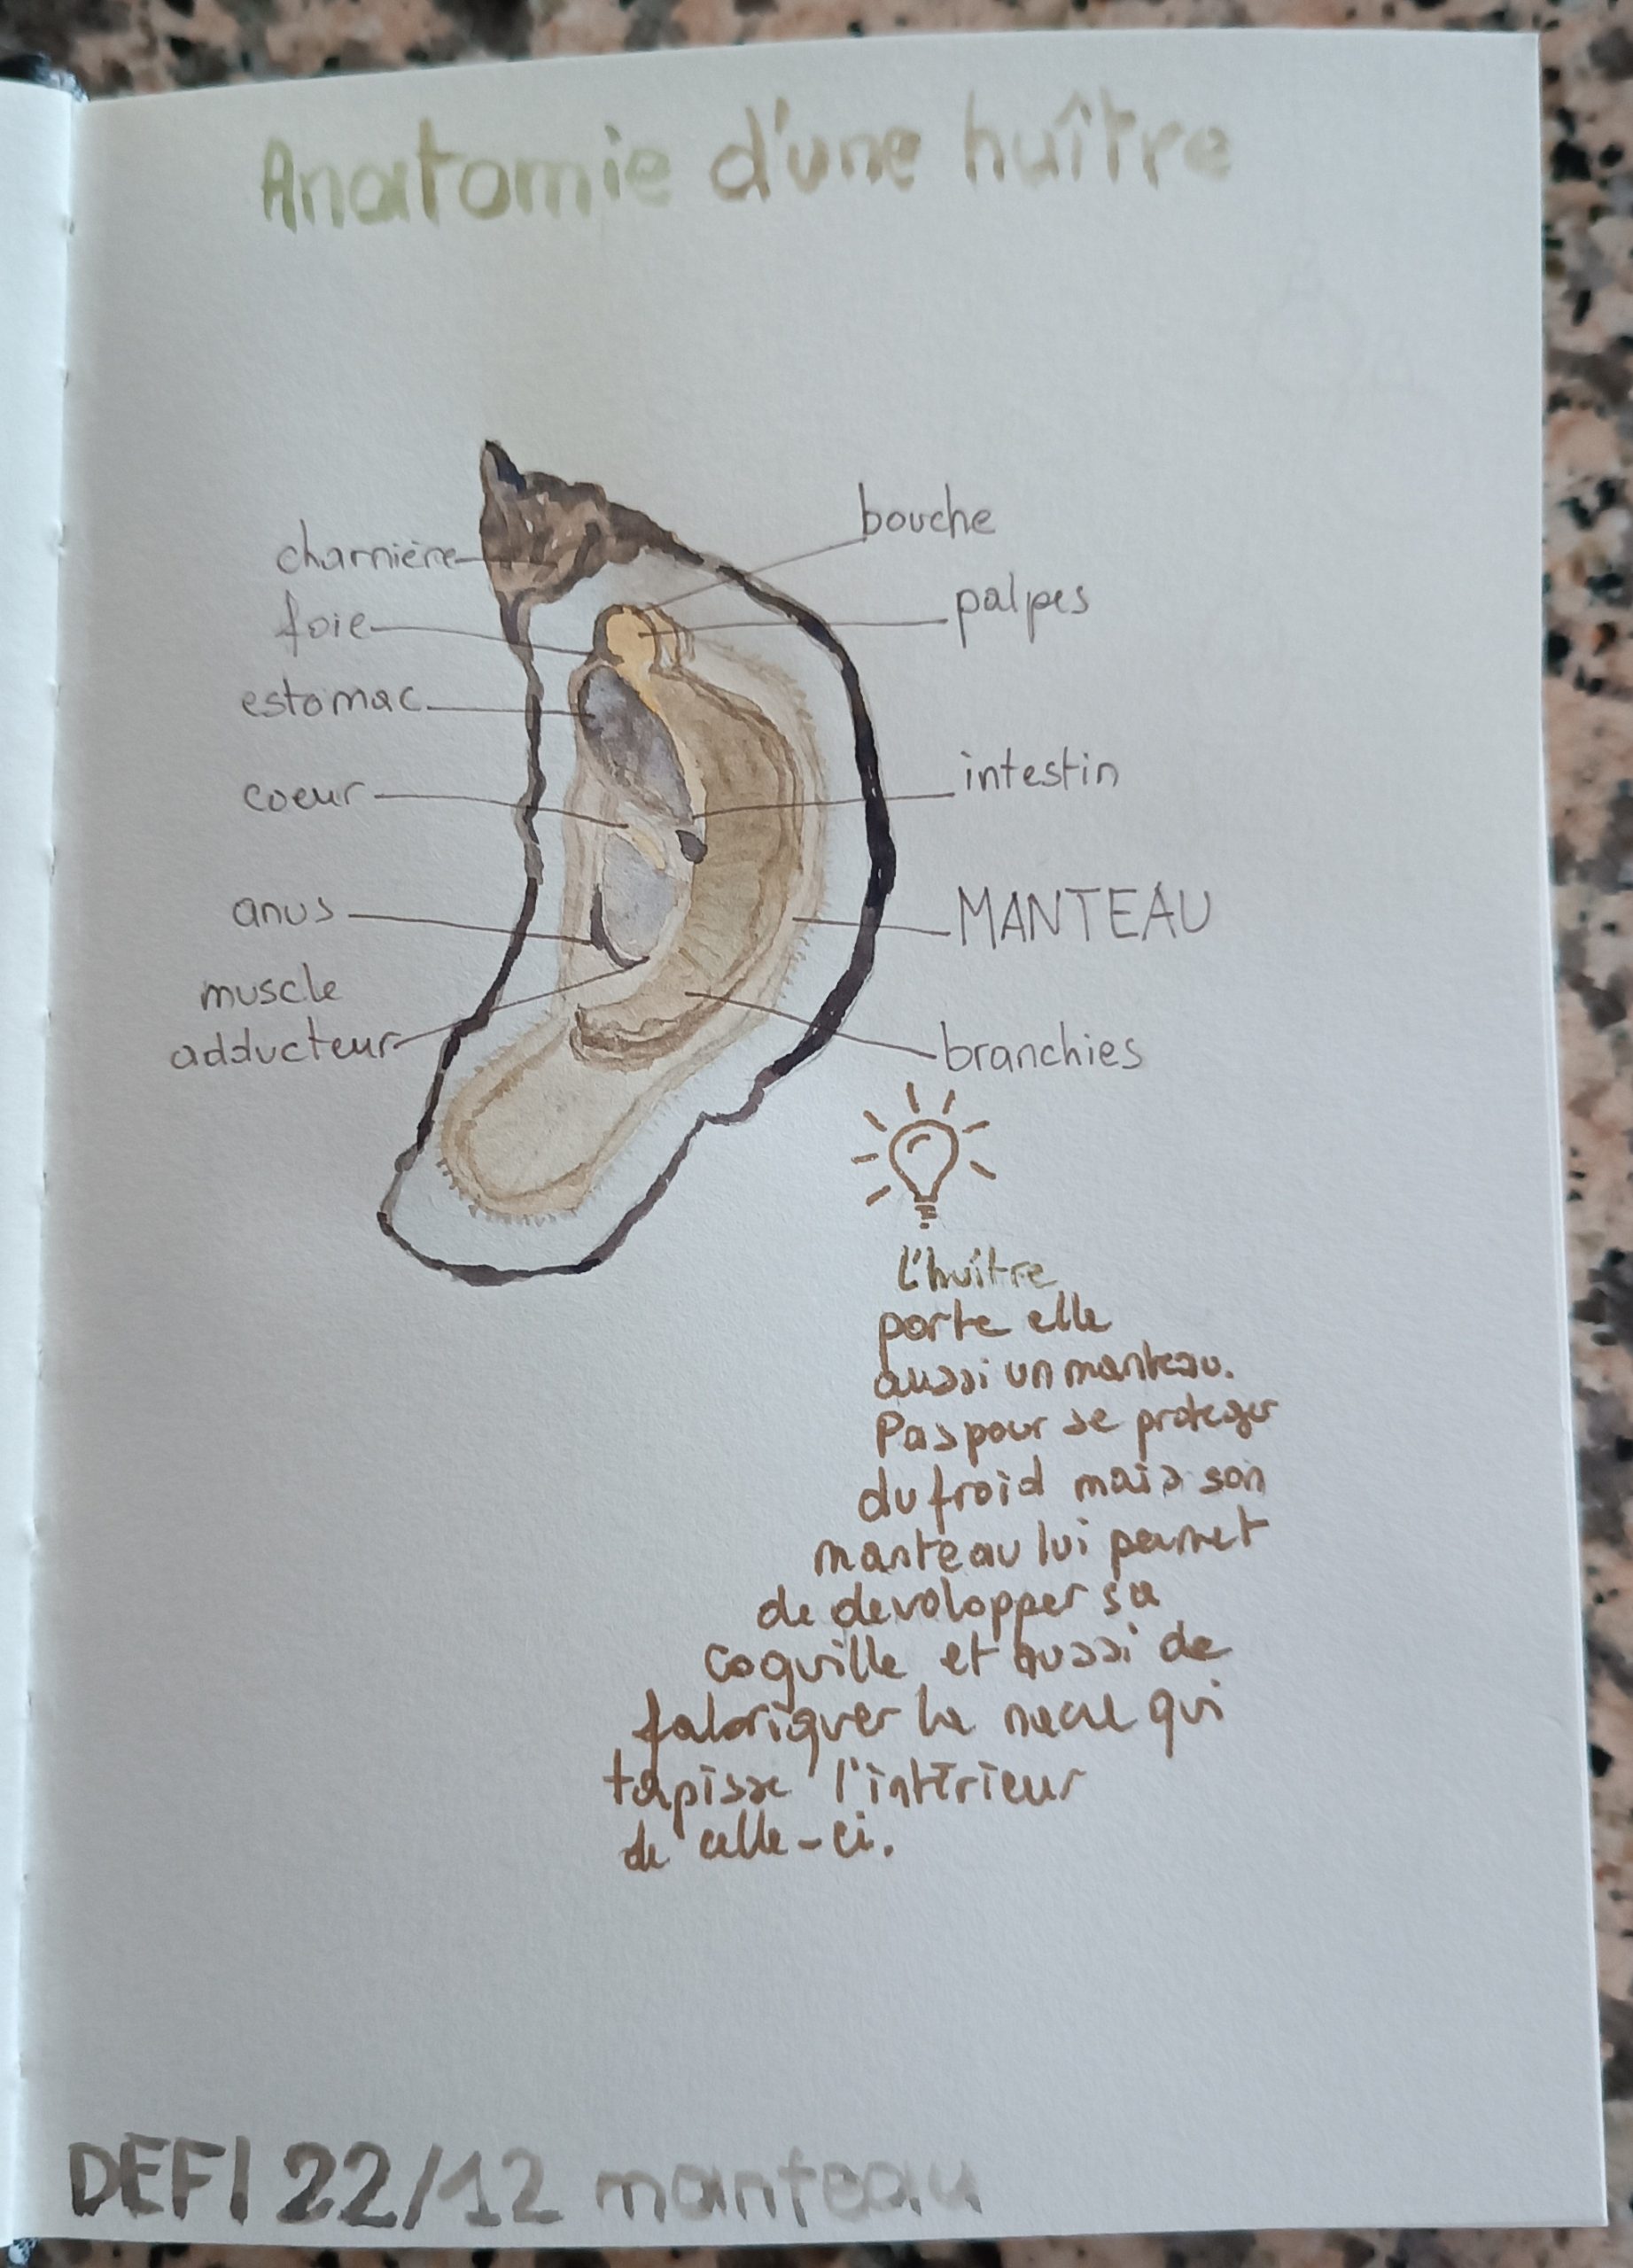 Anatomie d'une huître
bouche
charnière
palpes
foie
estomac
intestin
coeur
anus
MANTEAU
muscle
adducteur
branchies
L'huître
porte elle
aussi un manteau.
Pas pour se proteger
du froid mais son
manteau lui permet
de devolopper sa
coquille et aussi de
fabriquer la nacre qui
tapisse l'intérieur
de celle-ci.
DEFI 22/12 manteau